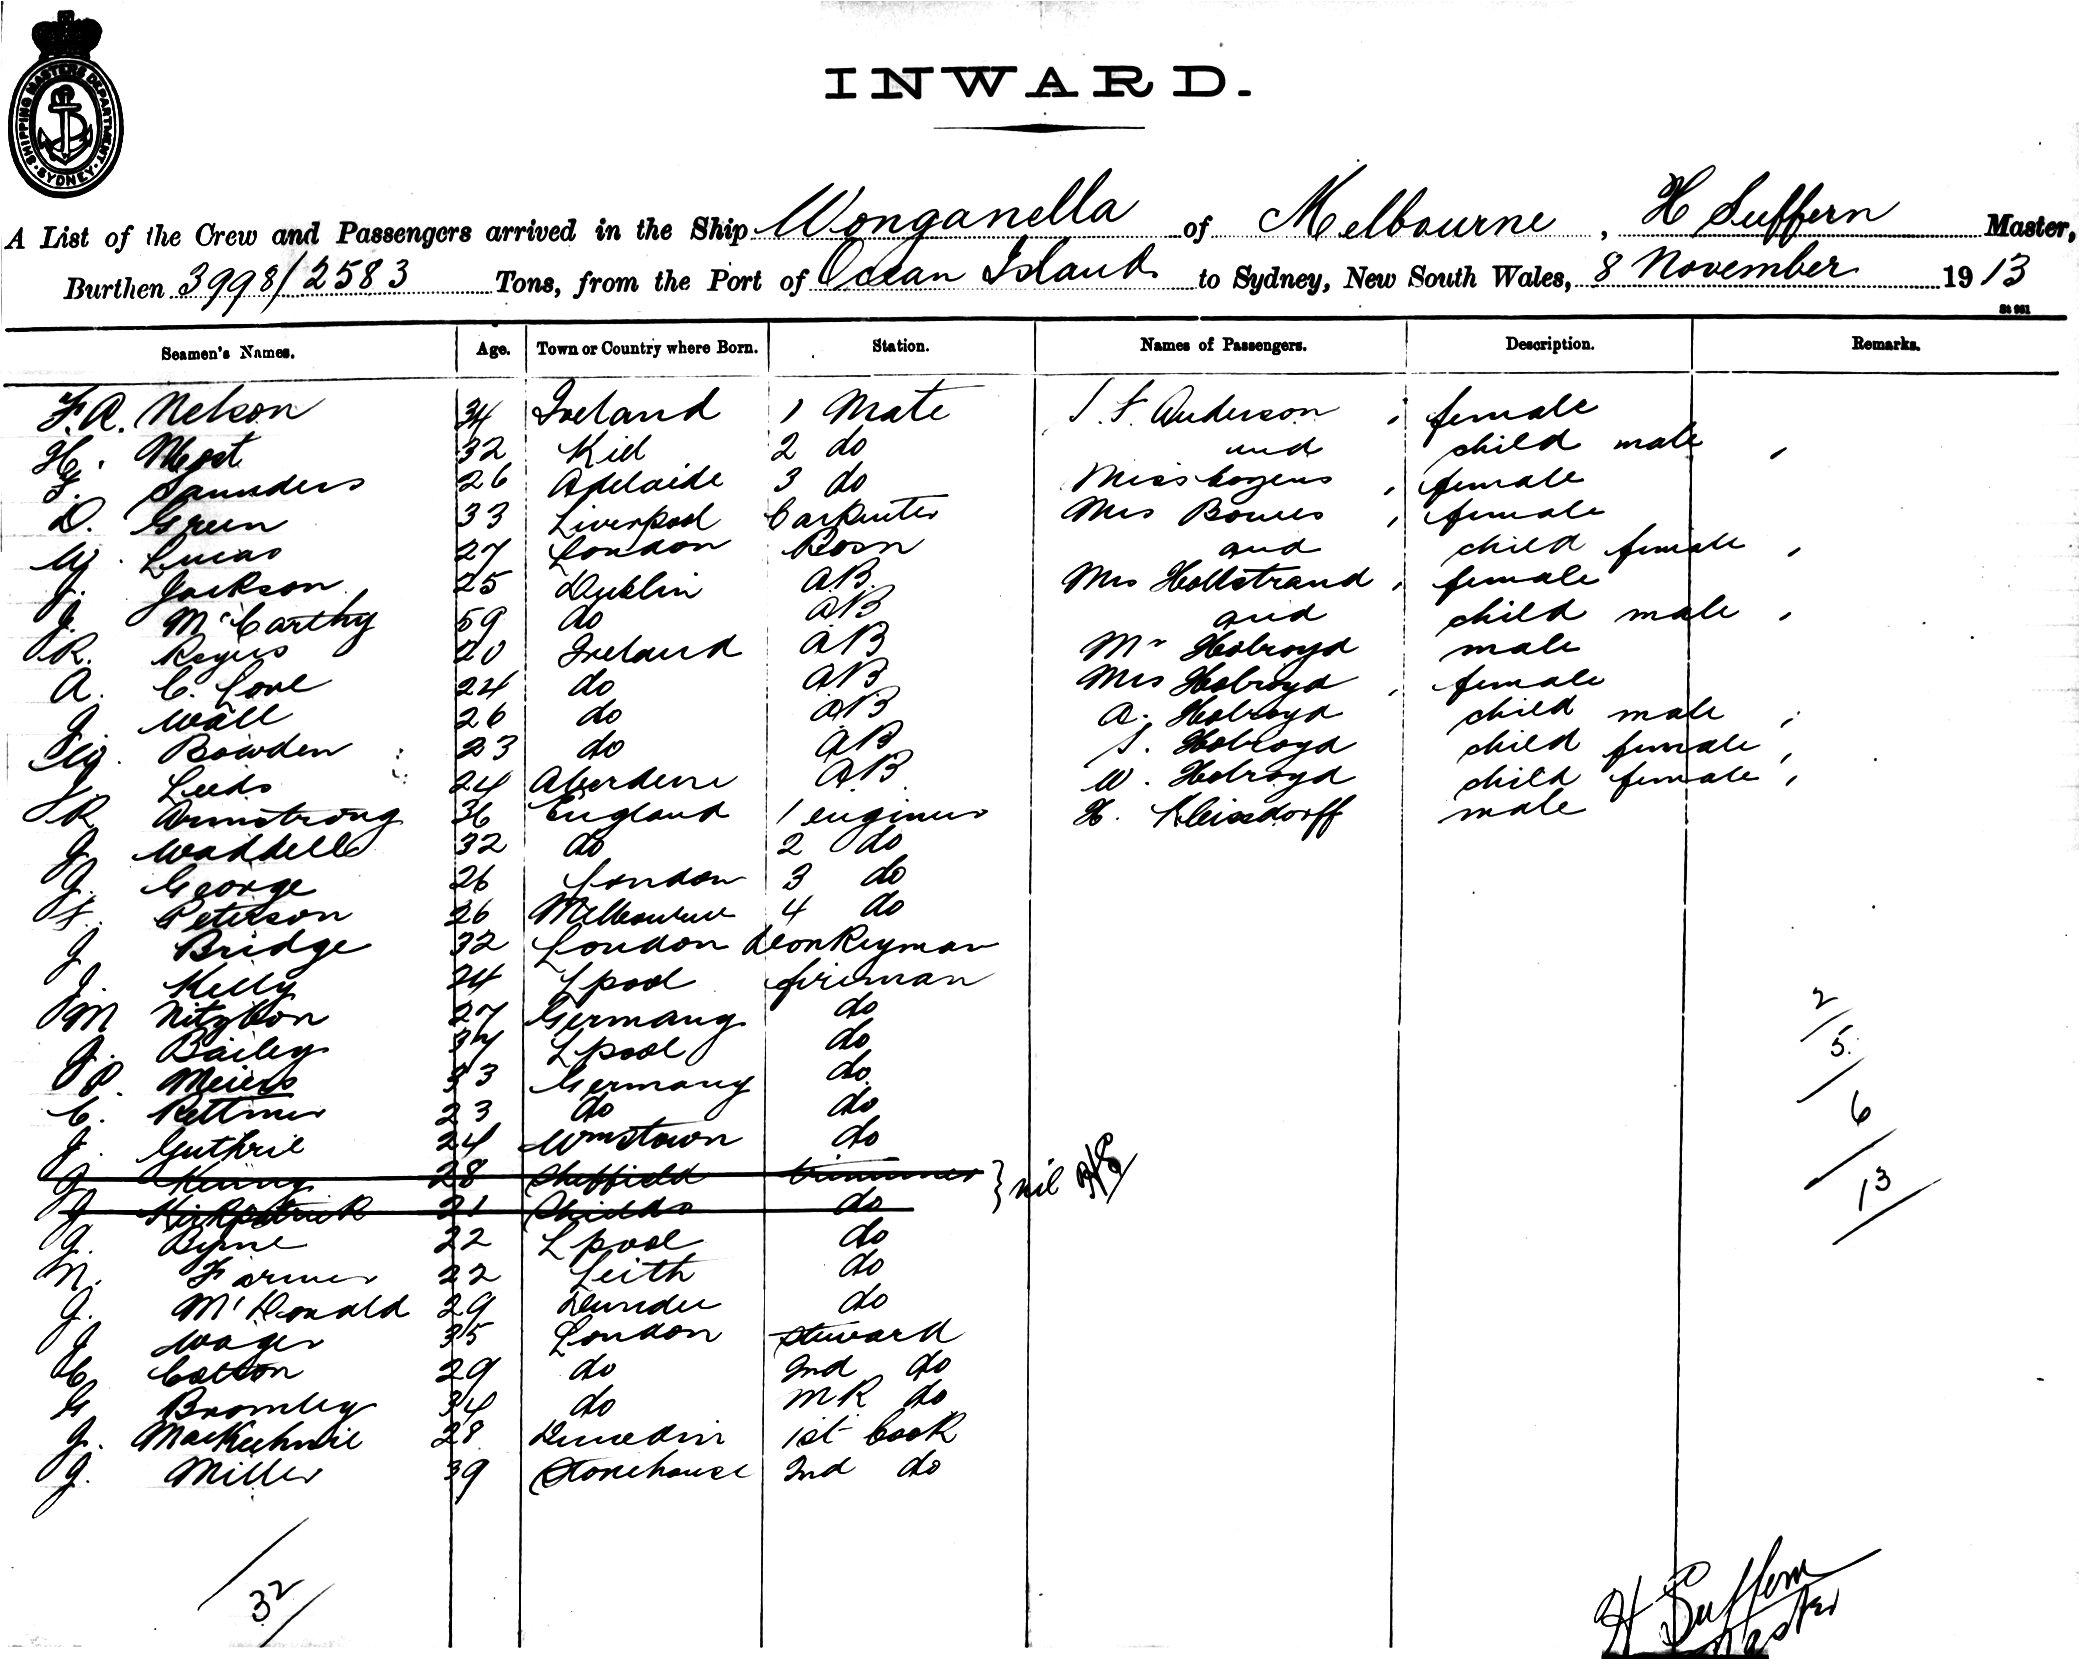 SHIPPING MASTERS DEPARTMENT
SYDNEY
INWARD.
A List of the Crew and Passengers arrived in the Ship Wonganella of Melbourne, H Suffern Master,
Burthen 3998/2583 Tons, from the Port of Ocean Island to Sydney, New South Wales, 8 November 1913
St 961
Seamen's Names. Age. Town or Country where Born. Station. Names of Passengers. Description. Remarks.
F.A. Nelson 34 Ireland 1 Mate S. F. Anderson female
H. 32 Kiel 2 do and child male
F. Saunders 26 Adelaide 3 do Miss female
D. Green 33 Liverpool Carpenter Mrs female
W. Lucas 27 London Bosn and child female
J. Jackson 25 Dublin AB. Mrs Hollstrand female
J. McCarthy 59 do AB and child male
R. Rogers 20 Ireland AB Mr Holroyd male
A. C. Cove 24 do AB Mrs Holroyd female
J. Wall 26 do AB A. Holroyd child male
Bowden 23 do AB S. Holroyd child female
J. Leeds 24 Aberdeen AB W. Holroyd child female
R Armstrong 36 England 1 engineer H. Kleissdorff male
J Waddell 32 do 2 do
J. George 26 London 3 do
F. Peterson 26 Melbourne 4 do
J Bridge 32 London Donkeyman
J. Kelly 24 Lpool fireman
M 27 Germany do
J. Bailey 37 Lpool do
P. Meiers 33 Germany do
C. Kettmer 23 do do
J. Guthrie 24 Wmstown do
J Kenny 28 Sheffield trimmer } nil HS
J Kirkpatrick 21 Shields do
J. Byrne 22 Lpool do
N. Farmer 22 Leith do
J. McDonald 29 Dundee do
J Wager 35 London steward
C Cotton 29 do 2nd do
G Bromley 34 do MR do
J. MacKechnie 28 Dunedin 1st Cook
J. Miller 39 Stonehouse 2nd do
2/
5/
6/
13/
32
H Suffern
Master